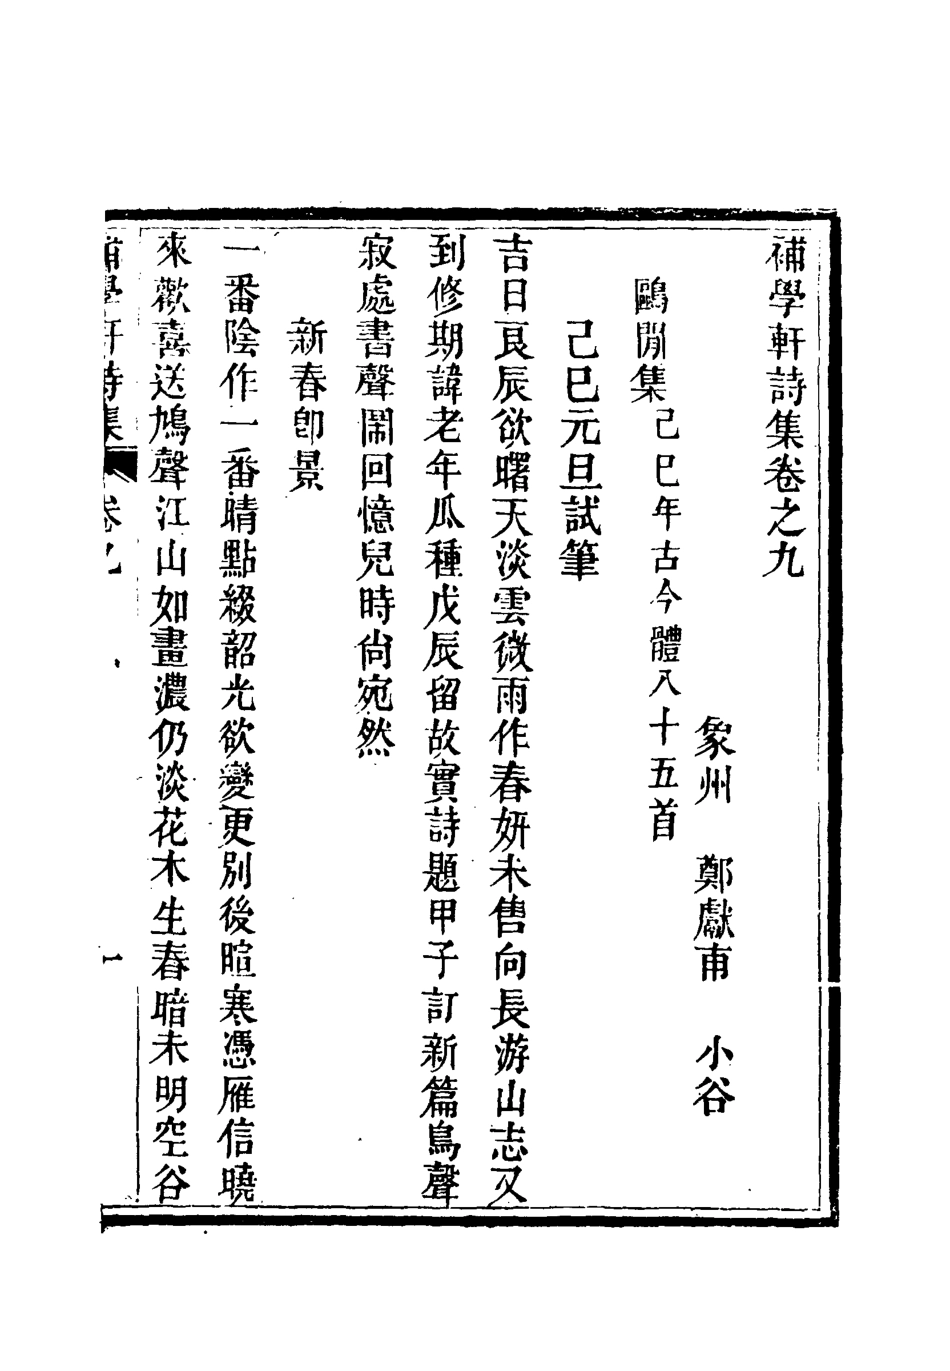 補學軒詩集卷之九
象州　鄭獻甫　小谷
鷗閒集己巳年古今體八十五首
己巳元旦試筆
吉日良辰欲曙天淡雲微雨作春妍未售向長游山志又
到修期諱老年瓜種戊辰留故實詩題甲子訂新篇鳥聲
寂處書聲鬧回憶兒時尙宛然
新春卽景
一番陰作一番晴點綴韶光欲變更別後暄寒憑雁信曉
來歡喜送鳩聲江山如畫濃仍淡花木生春暗未明空谷
補學軒詩集　卷九　一